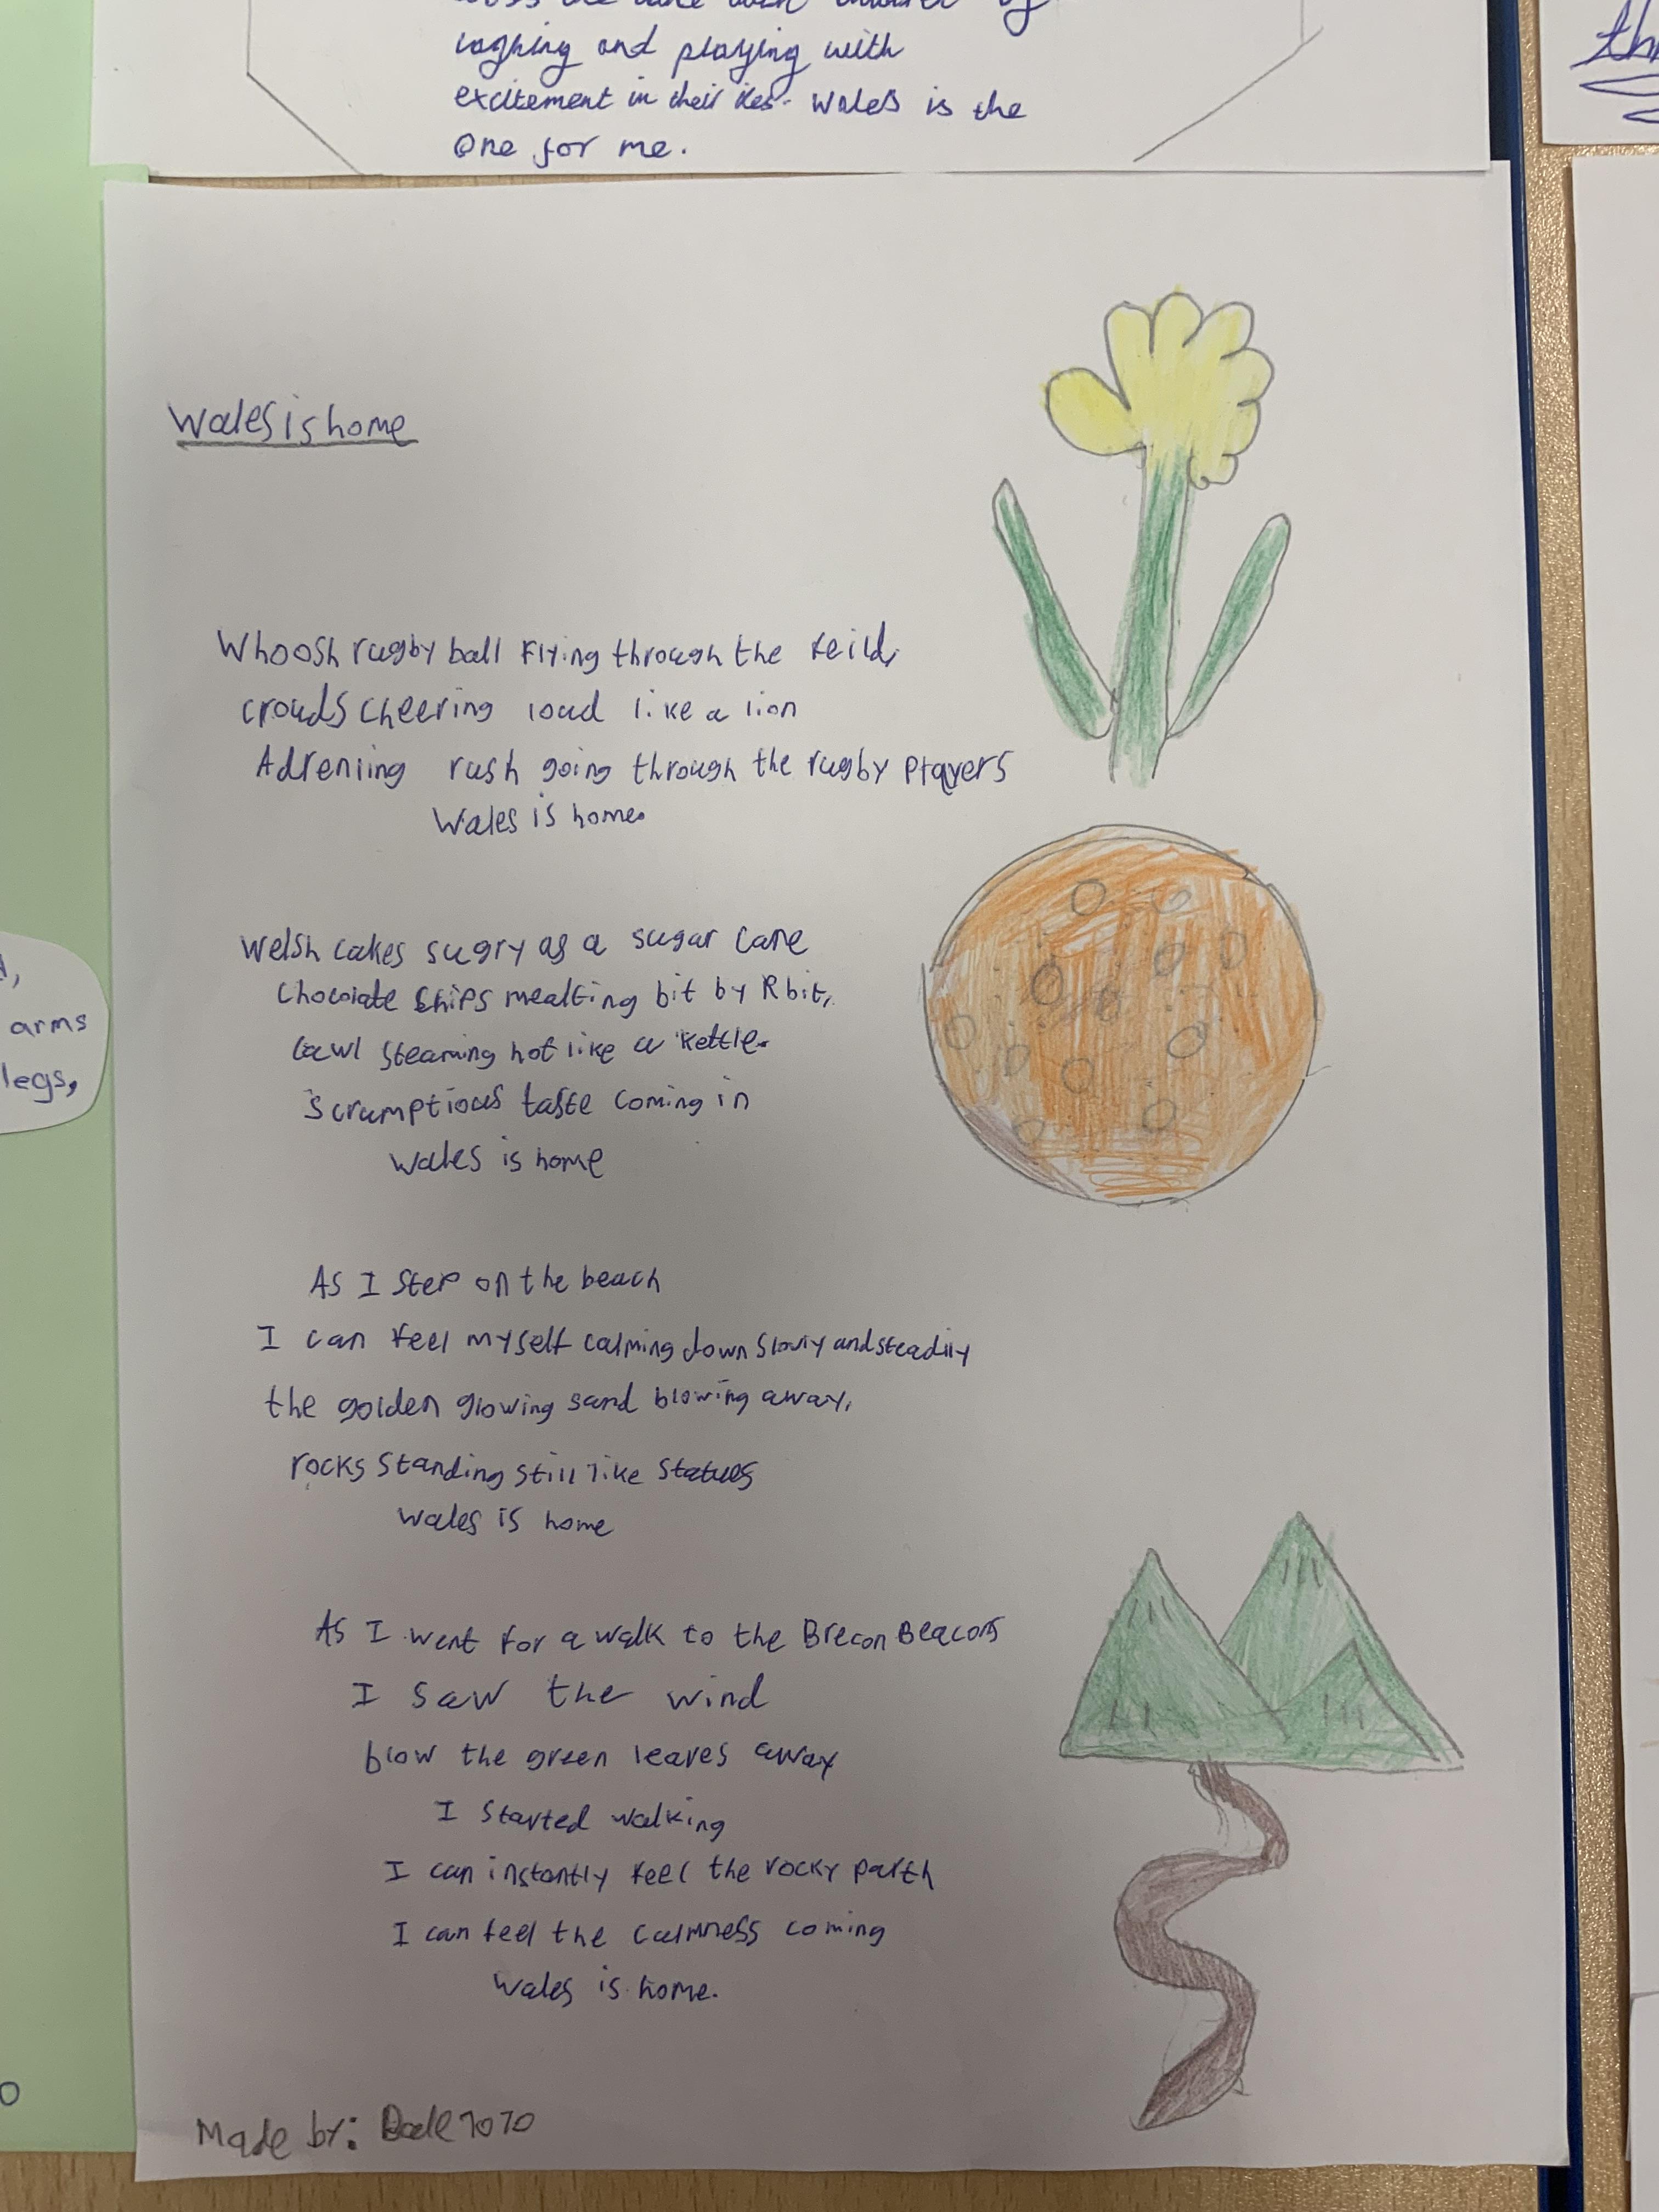 laghing and playing with
excitement in their Wales is the
One for me.
th
Wales is home
Whoosh rugby ball flying through the feild,
crouds cheering loud like a lion
Adrenling rush going through the rugby players
Wales is home.
Welsh cakes sugry as a sugar cane
chocolate chips mealting bit by bit,
Cawl steaming hot like a kettle.
Scrumptious taste coming in
Wales is home
arms
legs,
As I step on the beach
I can feel myself calming down slowly and steadily
the golden glowing sand blowing away,
rocks standing still like statues
Wales is home
As I went for a walk to the Brecon Beacons
I saw the wind
blow the green leaves away
I started walking
I can instantly feel the rocky parth
I can feel the calmness coming
Wales is home.
Made by: